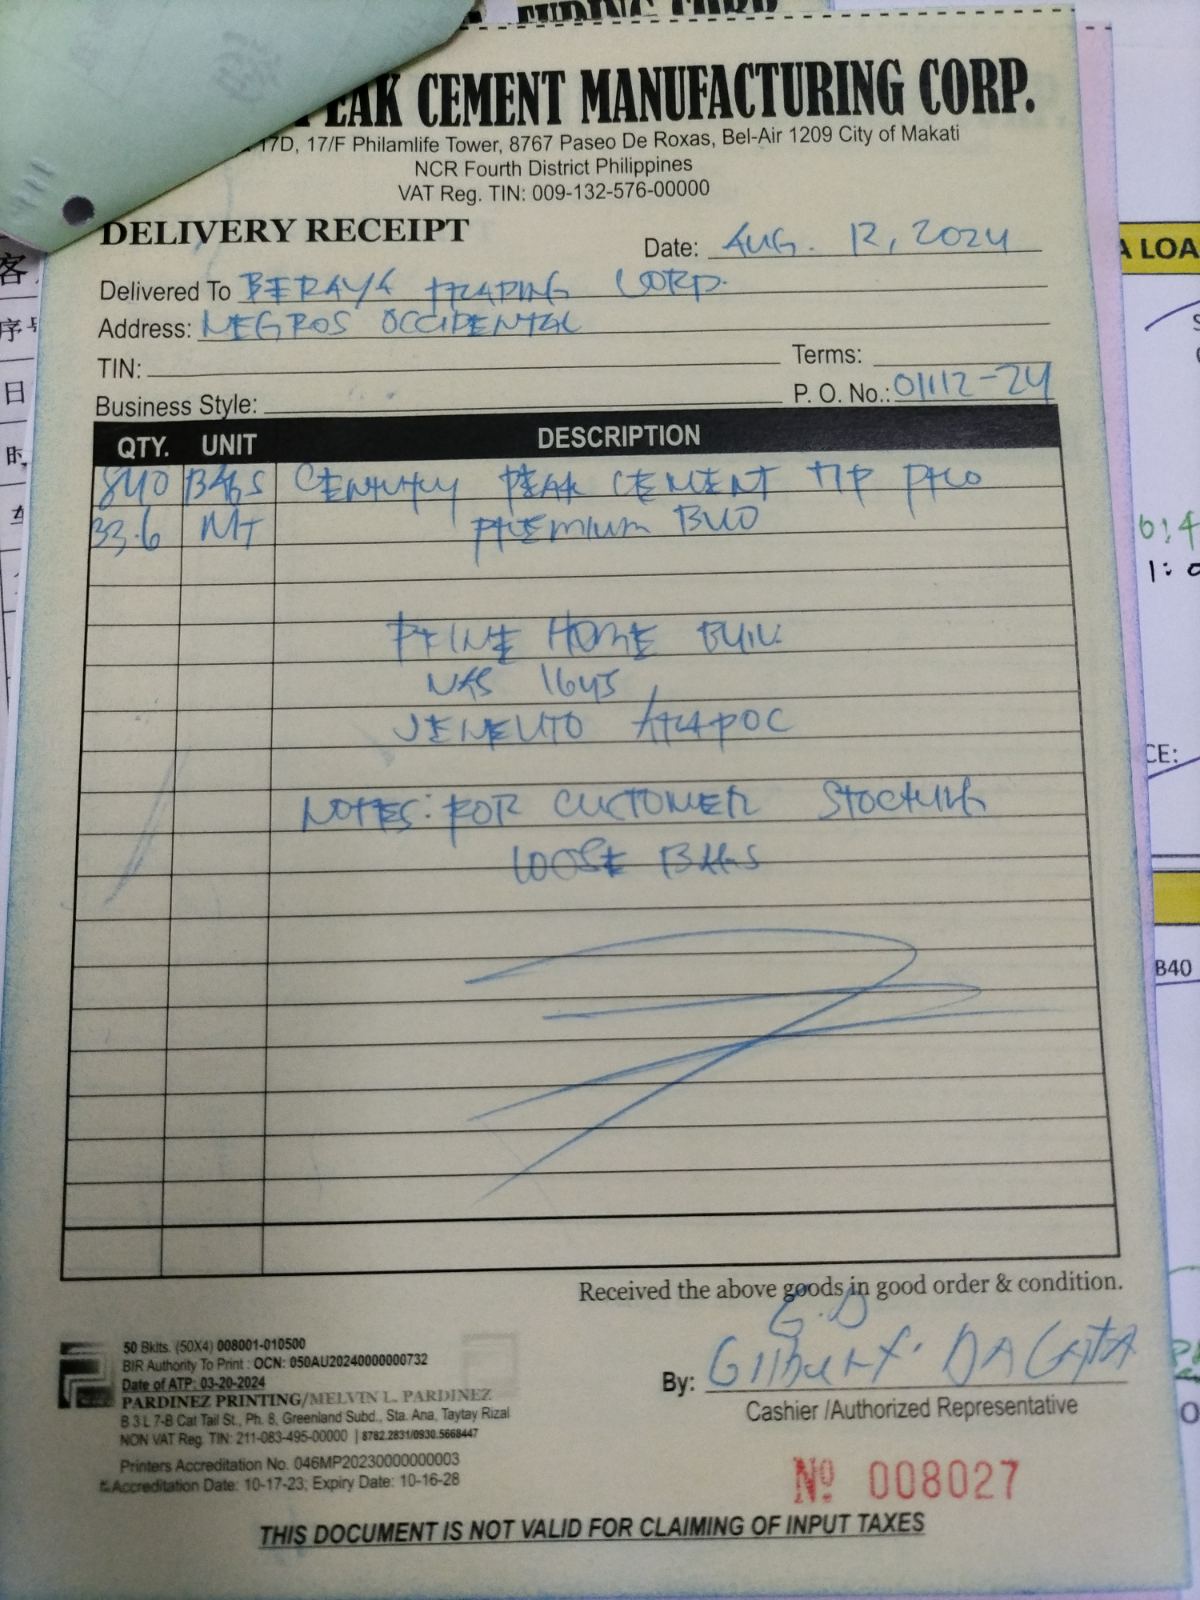 PEAK CEMENT MANUFACTURING CORP.
17D, 17/F Philamlife Tower, 8767 Paseo De Roxas, Bel-Air 1209 City of Makati
NCR Fourth District Philippines
VAT Reg. TIN: 009-132-576-00000
DELIVERY RECEIPT
Date: AUG. 12, 2024
Delivered To BERAYA TRADING CORP.
Address: NEGROS OCCIDENTAL
TIN:
Terms:
Business Style:
P. O. No.: 01112-24
QTY. UNIT DESCRIPTION
840 BAGS CENTURY PEAK CEMENT T1P PRO
33.6 MT PREMIUM B40
PRIME HOME
NAS 1645
NOTES: FOR CUSTOMER STOCKING
LOOSE BAGS
Received the above goods in good order & condition.
G.D
By: Gilbert DAGATA
Cashier /Authorized Representative
50 Bklts. (50X4) 008001-010500
BIR Authority To Print : OCN: 050AU20240000000732
Date of ATP: 03-20-2024
PARDINEZ PRINTING/MELVIN L. PARDINEZ
B 3 L 7-B Cat Tail St., Ph. 8, Greenland Subd., Sta. Ana, Taytay Rizal
NON VAT Reg. TIN: 211-083-495-00000 | 8782.2831/0930.5668447
Printers Accreditation No. 046MP20230000000003
Accreditation Date: 10-17-23; Expiry Date: 10-16-28
Nº 008027
THIS DOCUMENT IS NOT VALID FOR CLAIMING OF INPUT TAXES
A LOA
CE:
B40